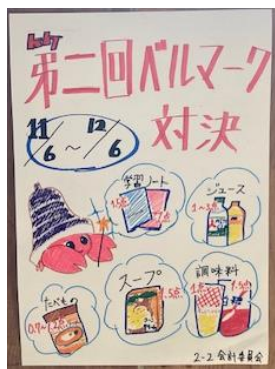 第二回ベルマーク
対決
11/6 ~ 12/6
学習ノート
ジュース
1~3点
スープ
1.5点
調味料
たべもの
2-2 会計委員会